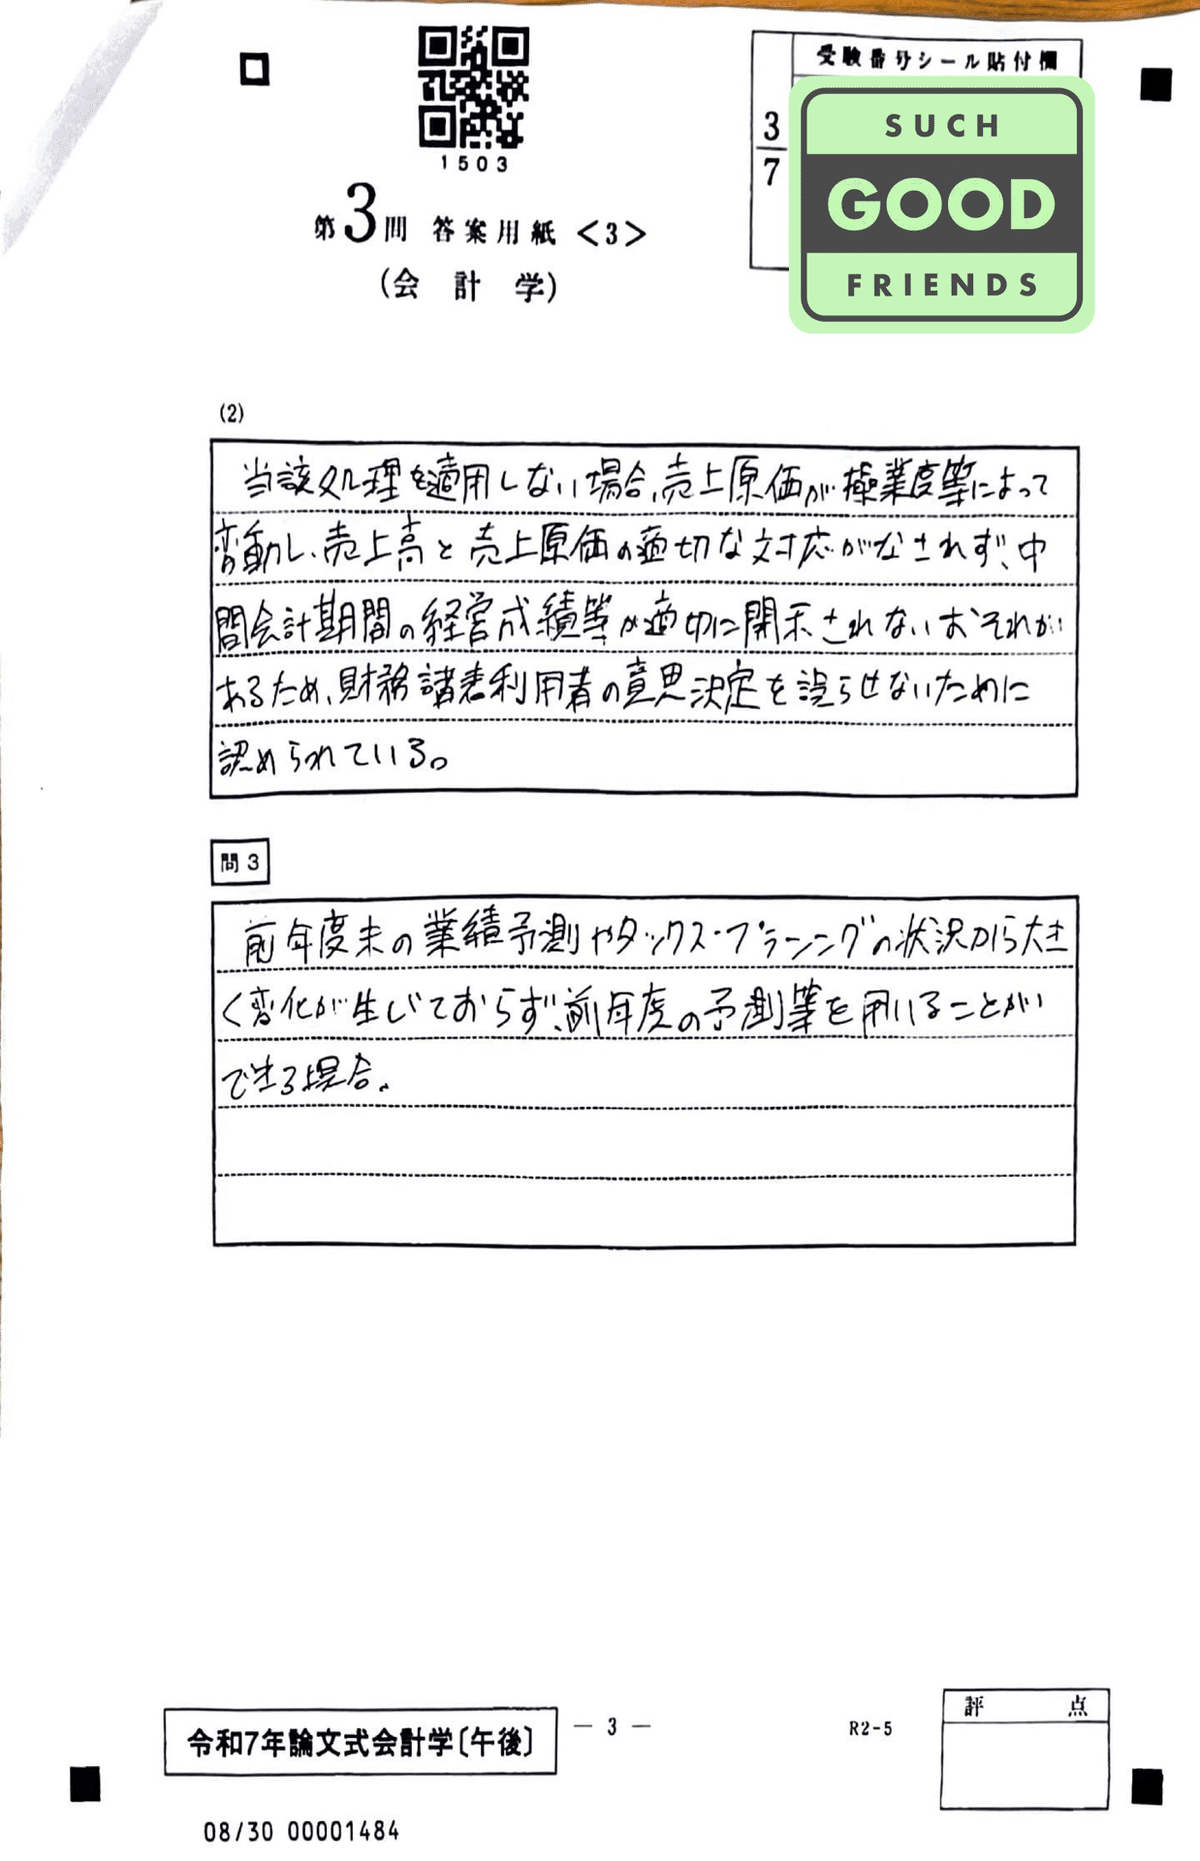 受験番号シール貼付欄
1503
3
7
SUCH
GOOD
FRIENDS
第3問 答案用紙<3>
(会計学)
(2)
当該処理を適用しない場合、売上原価が操業度等によって
変動し、売上高と売上原価の適切な対応がなされず、中
間会計期間の経営成績等が適切に開示されないおそれが
あるため、財務諸表利用者の意思決定を誤らせないために
認められている。
問3
前年度末の業績予測やタックス・プランニングの状況から大き
く変化が生じておらず、前年度の予測等を用いることが
できる場合。
令和7年論文式会計学〔午後〕
— 3 —
R2-5
評点
08/30 00001484